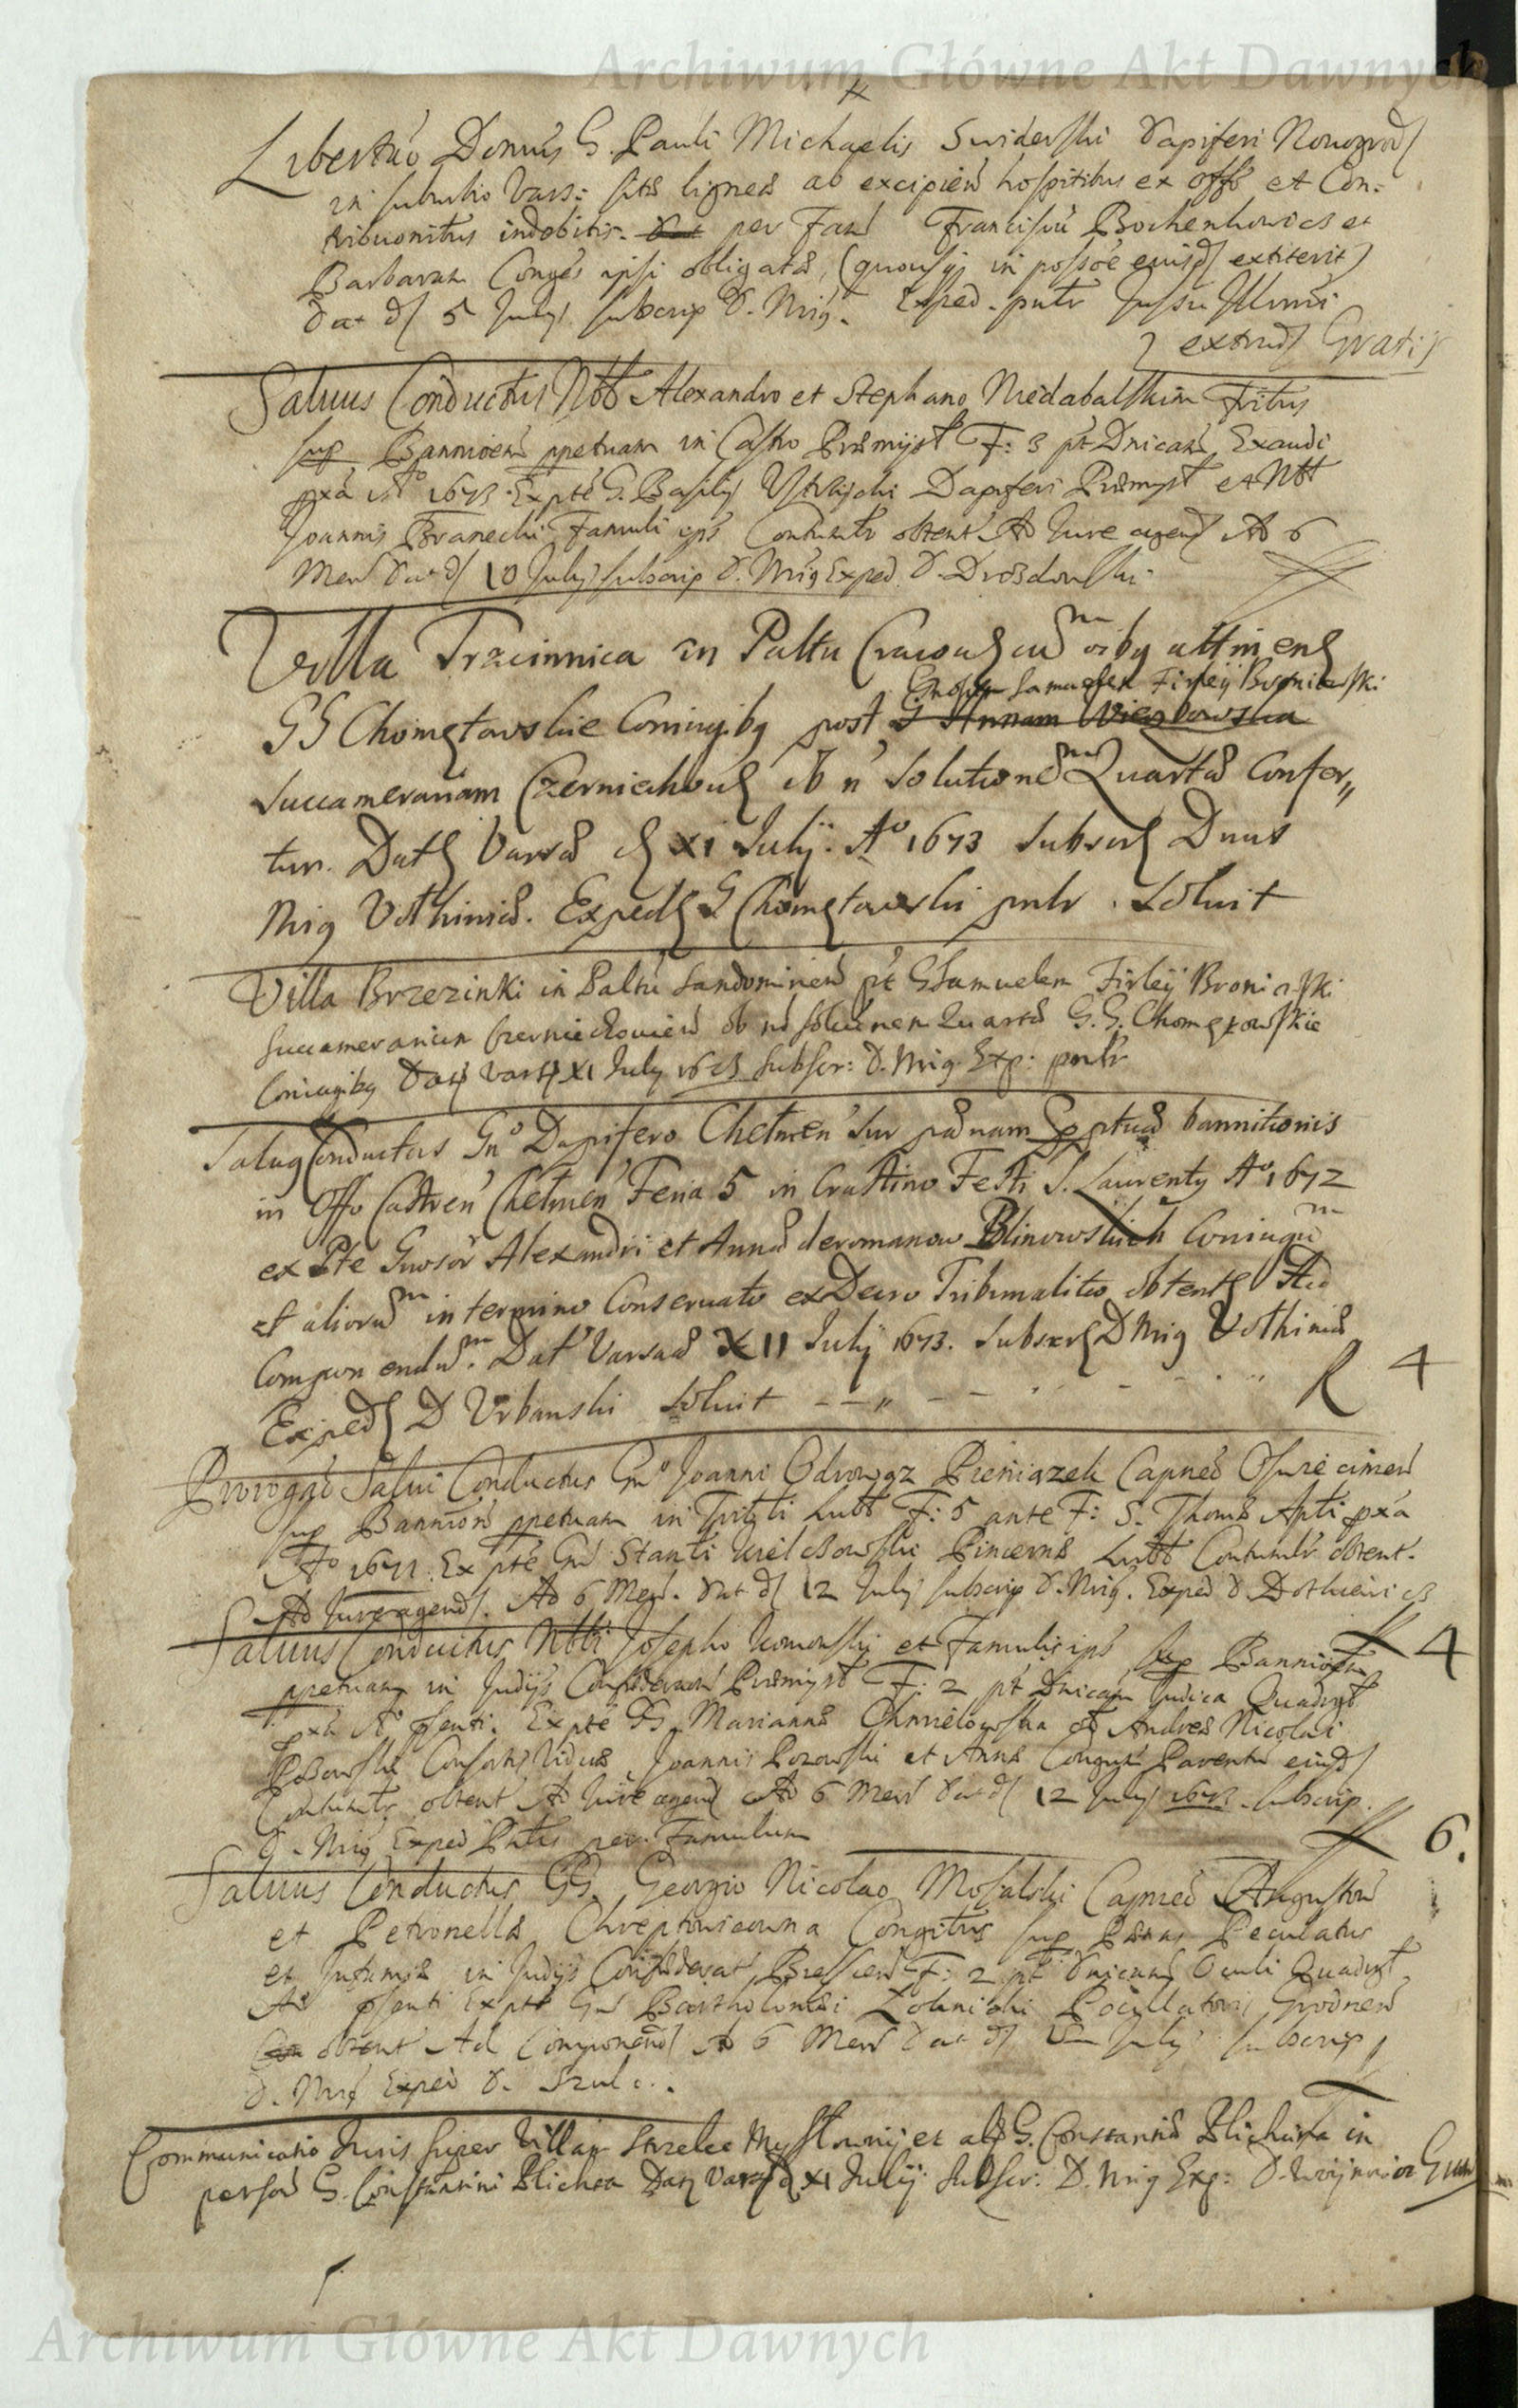 Archiwum Główne Akt Dawnych
Libertão Domus G. Pauli Michaelis Swiderski Dapiferi Nouogrod
in suburbio Vars: sitæ ligneæ ab excipien hospitibus ex offo et Con:
tribuonibus indebitis. per Fam Franciscū Bochenkowicz et
Barbaram Conges ipsi obligatæ, (quousq in possõe eiusd extiterit)
Dat d 5 July subscrip D. Mrig. Exped. pntr Jussu Illmi
extrad Gratis
Saluus Conductus Nbb Alexandro et Stephano Niedabalskim Fribus
sup Bannioem ppetuam in Castro Præmysl F: 3 pt Dnicam Exaudi
pxa Aº 1673. Expte G. Basilij Ustrzycki Dapiferi Præmysl et Nbl
Joannis Branecki Famuli ips Contumtr obtent Ad Jure agend Ad 6
Men Dat d 10 July subscrip D. Mrig Exped D. Drozdowski
Villa Trzcinnica in Paltu Cracou cū oibq attinen
Gnosum Samuelem Firleij Broniewski
GG Chomętowskie Coniugibq post G Annam Wierzbowska
Succamerariam Czerniechou ob n Solutionē Quartæ Confer„
tur. Dat Varsa d XI Julij. Aº 1673 Subscr Dnus
Mrig Vothiniæ. Exped G Chomętowski pntr. Soluit
Villa Brzezinki in Paltu Sandomirien pt GSamuelem Firleij Broniewski
Succamerarium Czerniechouien ob nō solūnem Quartæ G. G. Chomętowskie
Coniugibq Dat Vars XI July 1673 Subscr: D. Mrig. Exp: pntr
Saluq Conductus Gnº Dapifero Chelmen Sur pænam pptuæ bannitionis
in Offo Castren Chelmen Feria 5 in Crastino Festi S. Laurenty Aº 1672
ex Pte Gnosor Alexandri et Annæ deromanow Blinowskich Coniugū
et aliorū in termino Conseruato ex Decro Tribunalitio obtent Ad
Componendū. Dat Varsaæ XII July 1673. Subscr D Mrig Vothiniæ
Exped D Urbanski Soluit - - „ - - R 4
Prorogão Salui Conductus Gnº Joanni Odrowąz Pieniązek Capneo Osuiecimen
sup Bannionē ppetuam in Tribli Lubl F: 5 ante F: S. Thomæ Apli pxa
Aº 1672. Ex pte Gni Stanli Wielobowski Pincernæ Lubl Contumtr obtent.
Ad Jure agend. Ad 6 Men. Dat d 12 July subscrip D. Mrig. Exped D.
4
Saluus Conductus Nbli Josepho et Famulis ips sup Bannionem
ppetuam in Judijs Confœderat Præmysl F: 2 pt Dnicam Judica Quadrgl
pxa Aº psenti. Expte G. Mariannæ Chmielowska ol Andreæ Nicolai
Consortis Viduæ, Joannis et Annæ Congum Parentū eiusd
Contumtr obtent Ad Jure agend Ad 6 Men Dat d 12 July 1673 subscrip.
D. Mrig Exped Pntis per Famulum
6.
Saluus Conductus GG. Georgio Nicolao Mosalski Capneo Augustow
et Petronella Chreptowiczowna Congibus sup Pænas Peculatus
et Infamiæ in Judijs Confœderat Brescien F: 2 pt Dnicam Oculi Quadrgl
Aº psenti Expte Gni Bartholomæi Zolnicki Pocillatoris Grodnen
obtent Ad Componend Ad 6 Men Dat d 12 July subscrip
D. Mrig Exped D. Szul...
Communicatio Juris super Villam Strzelce Mysłownij et al G. Constantiæ Plichcina in
person G. Constantini Plichta Dat Vars d XI Julij. Subscr: D. Mrig Exp: D.
Archiwum Główne Akt Dawnych